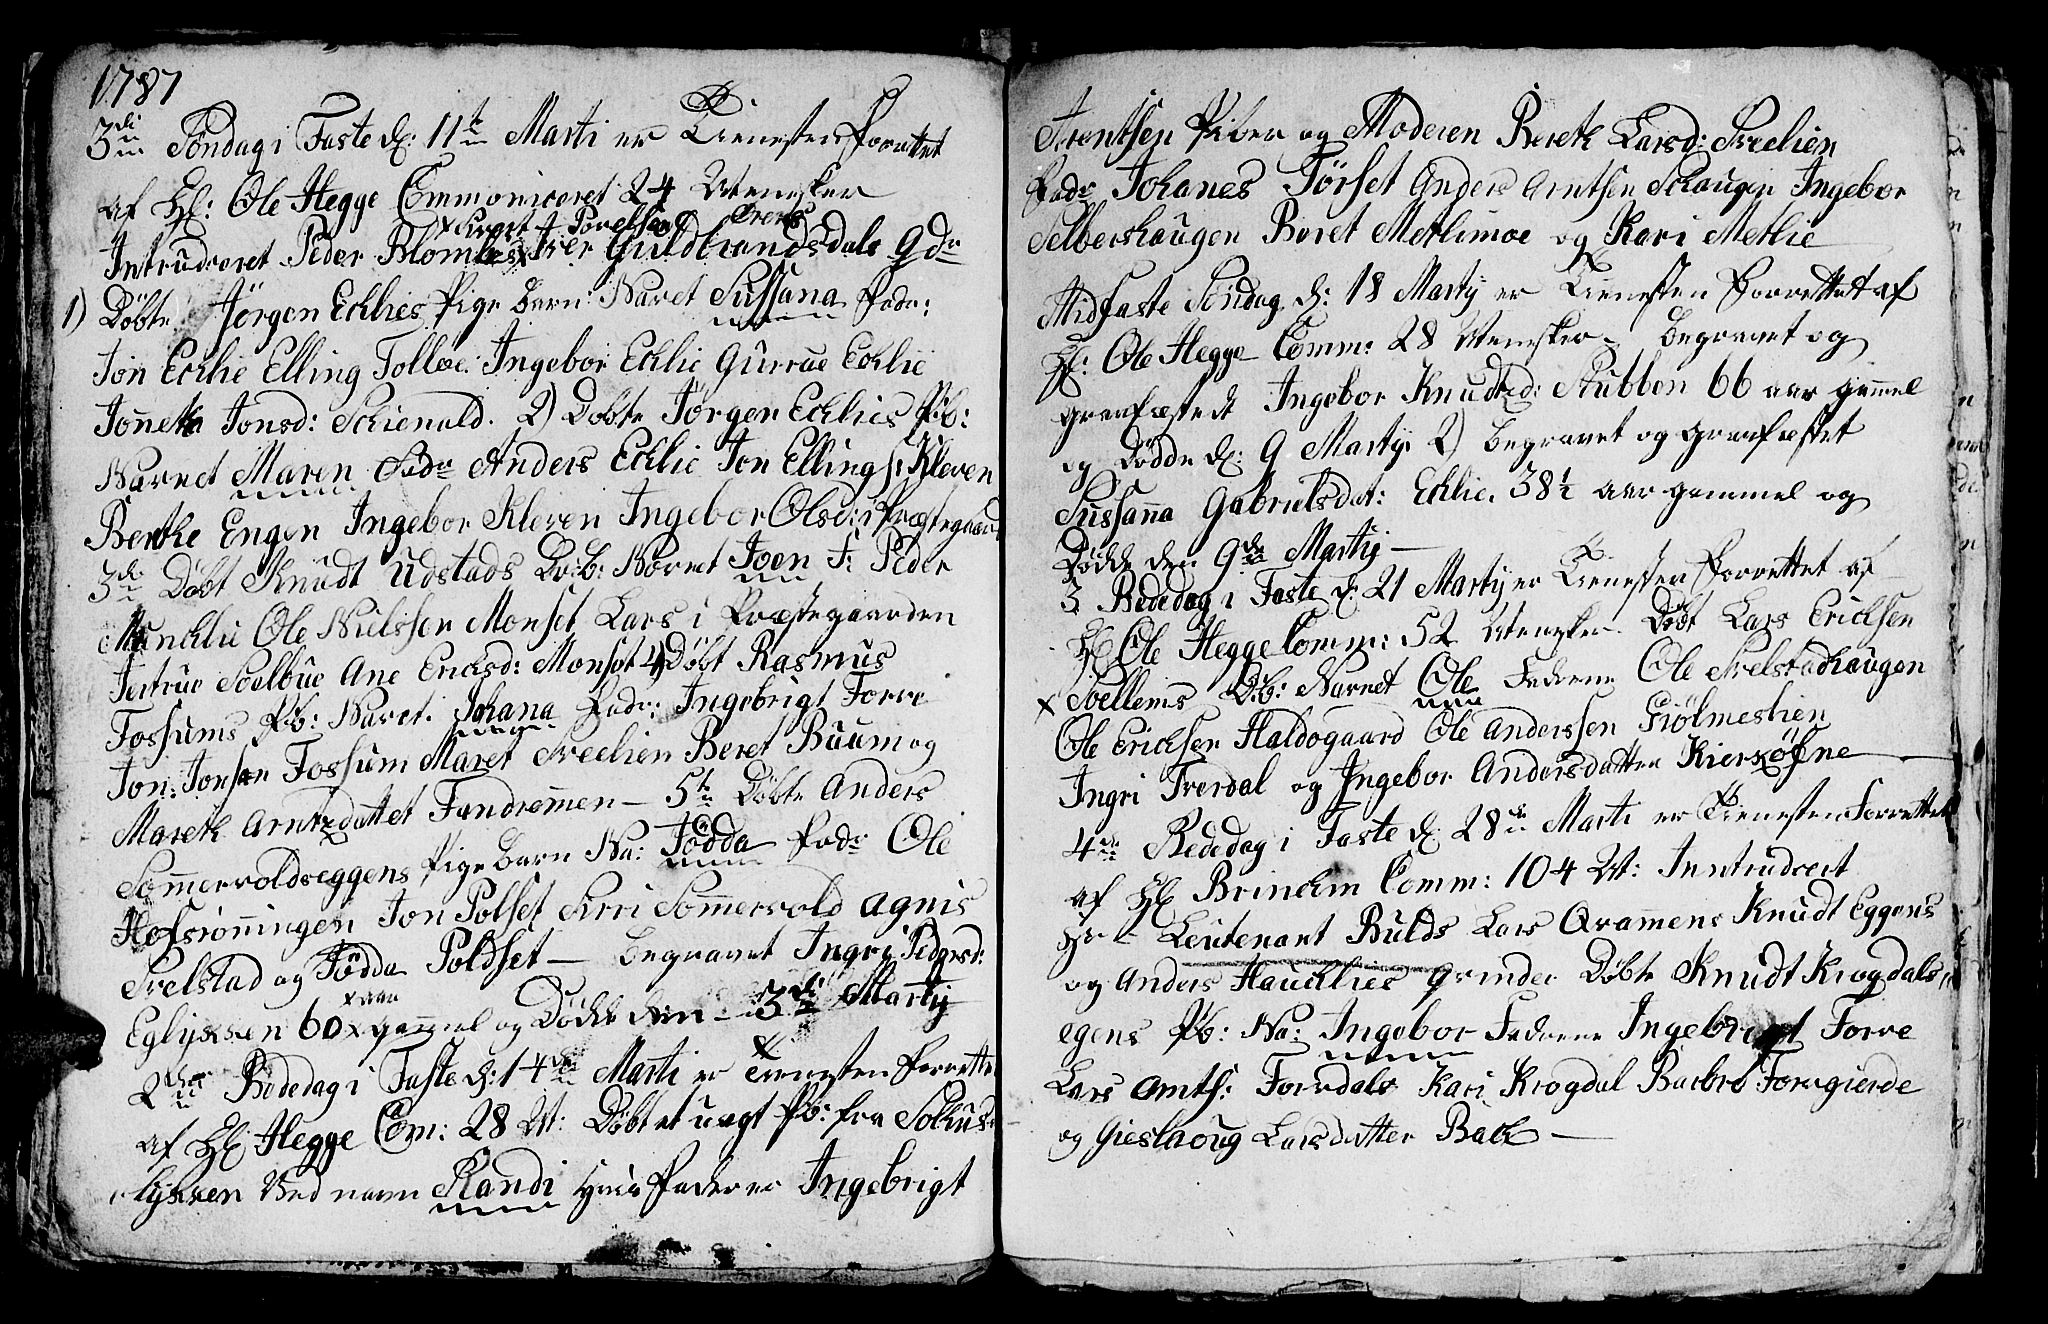 1787
3die Søndag i Faste d: 11te Marti er Tienesten Forrettet
af H: Ole Hegge Commoniceret 24 Mennesker
Intruderet Peder Blomlies Iver Guldbrandsdals Qde
1) Døbte Jørgen Echlies Pige Barn Navnet Sussana Fadr:
Jon Echlie Elling Tolløe Ingebor Echlie Gurrue Echlie
Joneth Jonsd: Schienald. 2) Døbte Jørgen Echlies Pb:
Navnet Maren Fadr Anders Echlie Jon Ellings: Kleven
Berthe Engen Ingebor Kleven Ingebor Olsd: i Præstegaard
3de Døbt Knudt Udstads Dr:b: Navnet Joen F: Peder
Ole Nielssen Monset Lars i Præstegaarden
Jertrue Soelbue Ane Ericksd: Monset 4) Døbt Rasmus
Fossums Pb: Navnet Johana Fadr: Ingebrigt Forre
Jon Jonsen Fossum Maret Sveelien Beret Buum og
Mareth Arntzdattet Fandremmen — 5te Døbte Anders
Sommervoldseggens Pige Barn Na: Födda Fadr Ole
Hofsrønningen Jon Polset Sirri Sommervold Agnis
Svelstad og Födda Poldset — Begravet Ingri Pedersd:
Eglyssen 60 aar gammel og Døde den 3die Martij
2den Bededag i Faste d: 14de Marti er Tienesten Forrettet
af H Hegge Com: 28 M: Døbt et uægt Pb: fra Solhus
lykken Ved navn Randi hvis Fader er Ingebrigt
Arentsen og Moderen Bereth Larsd: Sveelien
Fadr Johanes Törset Anders Arntsen Schaugen Ingebor
Selbershaugen Beret Methimoe og Kari Methie
Midfaste Søndag d: 18 Martij er Tienesten Forrettet af
H: Ole Hegge Comm: 28 Mennesker — Begravet og
Gravfæstedt Ingebor Knudtzd: Stubben 66 aar gammel
og Døde d: 9 Martij 2) Begravet og Gravfæstet
Sussanna Gabrielsdat: Echlie 38 1/2 aar gammel og
Døde den 9de Martij —
3 Bededag i Faste d: 21 Martij er Tienesten Forrettet af
H Ole Hegge Comm: 52 Mennesker Døbt Lars Erichsen
x Soellems Db: Navnet Ole Faderne Ole Svelstadhaugen
Ole Erichsen Haldogaard Ole Anderssen Fiølmeslien
Ingri Trerdal og Ingebor Andersdatter Kiersøfne
4de Bededag i Faste d: 28de Marti er Tienesten Forrettet
af H Brinchm Comm: 104 M: Inntruderit
Hr Leutenant Bulds Lars Qvammens Knudt Eggens
og Anders Hauchlies Qvinder Døbte Knudt Krogdals
egens Pb: Na: Ingebor Faderne Ingebrigt Forre
Lars Arnts: Forrdals Kari Krogdal Barbro Forrgierde
og Gieshoug Larsdatter Bach —